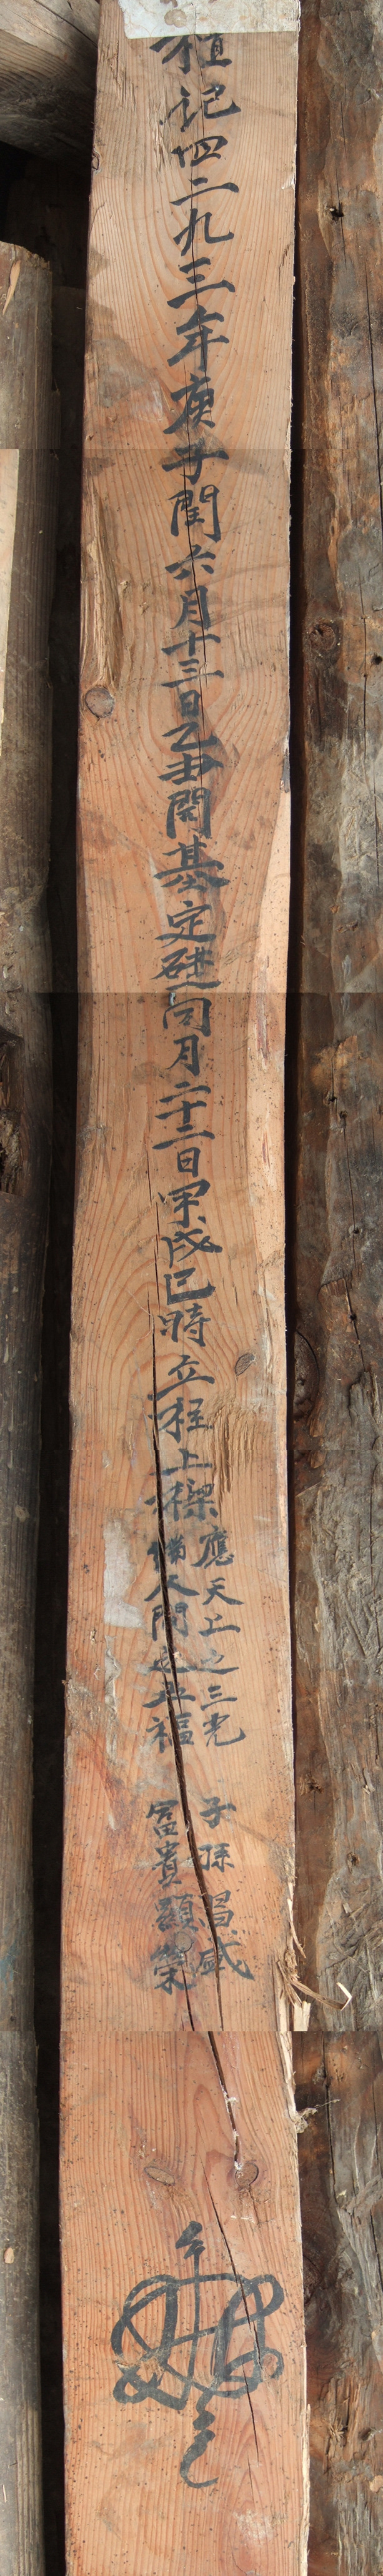 檀記四二九三年庚子閏六月十三日乙丑開基定礎同月二十二日甲戌巳時立柱上樑
應天上之三光
備人間之五福
子孫昌盛
富貴顯榮
龜